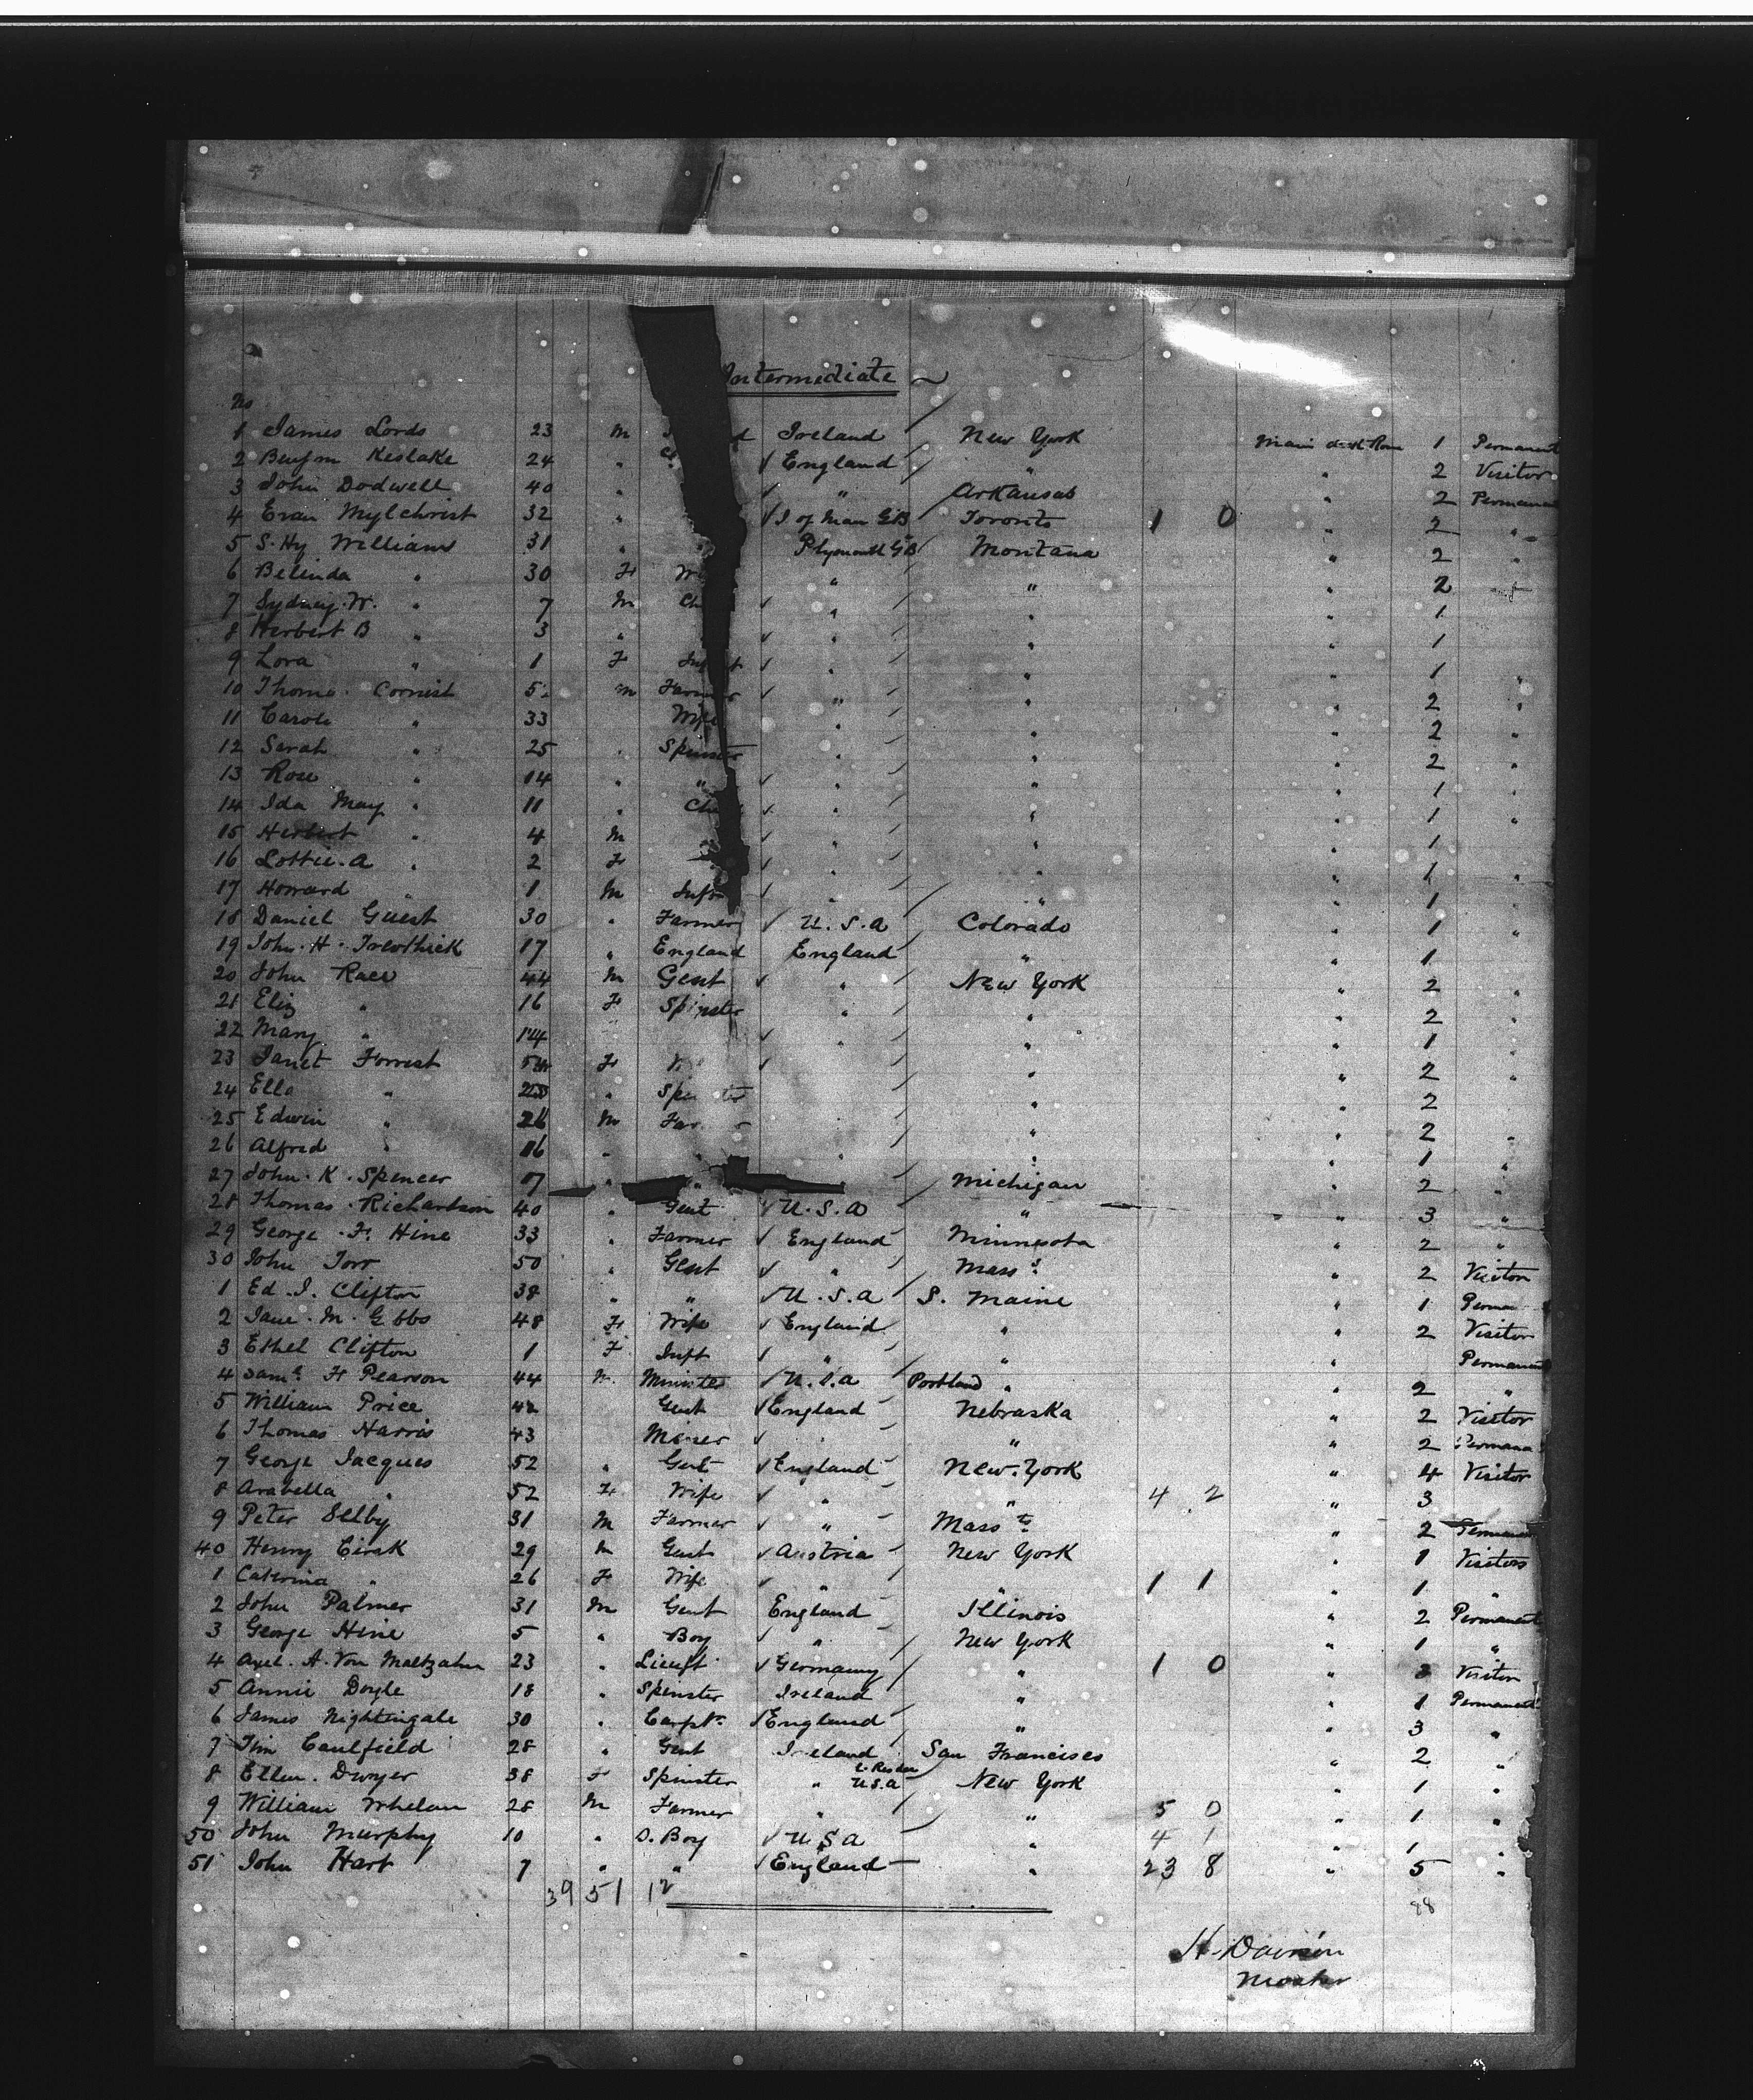 Intermediate
No
1 James Lords 23 M Ireland New York Main deck 1 Permanent
2 Benjm Keslake 24 " England " " 2 Visitor
3 John Dodwell 40 " " Arkansas " 2 Permanent
4 Evan Mylchrist 32 " I of Man GB Toronto 1 0 " 2 "
5 S. Hy Williams 31 " Plymouth GB Montana " 2 "
6 Belinda " 30 F " " " 2
7 Sydney. W. " 7 M Ch " " " 1
8 Herbert B " 3 " " " " 1
9 Lora " 1 F " " " 1 "
10 Thoms. Cornish M Farmer " " " 2 "
11 Carole " 33 Wife " " " 2 "
12 Sarah " 25 " Spinster " " " 2 "
13 Rose " 14 " " " " " 1 "
14 Ida May " 11 " Ch " " " 1 "
15 Herbert " 4 M " " " 1
16 Lottie. A " 2 F " " " 1 "
17 Howard " 1 M Inft " " " 1
18 Daniel Guest 30 " Farmer U. S. A Colorado " 1 "
19 John. H. Trevthick 17 " England England " " 1
20 John Race 44 M Gent " New York " 2 "
21 Eliz " 16 F Spinster " " " 2 "
22 Mary " 14 " " " 1
23 Janet Forrest F " " 2 "
24 Ella " " " " 2
25 Edwin " 26 M " " 2
26 Alfred " 16 " " " 1 "
27 John. K. Spencer 17 " " Michigan " 2 "
28 Thomas. Richardson 40 " Gent U. S. A " " 3 "
29 George. F. Hine 33 " Farmer England Minnesota " 2 "
30 John Torr 50 " Gent " Mass " 2 Visitor
1 Ed. J. Clifton 38 " " U. S. A S. Maine " 1 Perma
2 Jane. M. Gibbs 48 F Wife England " " 2 Visitor
3 Ethel Clifton 1 F Inft " " " Permanent
4 Saml F Pearson 44 M. Minister U. S. A Portland " " 2 "
5 William Price 42 Gent England Nebraska " 2 Visitor
6 Thomas Harris 43 Miner " " " 2 Permana
7 George Jacques 52 " Gent England New. York " 4 Visitor
8 Arabella " 52 F Wife " " 4 2 " 3
9 Peter Selby 31 M Farmer " Mass " 2 Permanen
40 Henry Eirsk 29 M Gent Austria New York " 1 Visitors
1 Caterina " 26 F Wife " " 1 1 " 1 "
2 John Palmer 31 M Gent England Illinois " 2 Permanent
3 George Hine 5 " Boy " New York " 1 "
4 Axel. A. Von Maltzahn 23 " Lieut Germany " 1 0 " 3 Visitor
5 Annie Doyle 18 " Spinster Ireland " " 1 Permanent
6 James Nightingale 30 " Carptr England " " 3 "
7 Tim Caulfield 28 " Gent Ireland San Francisco " 2 "
8 Ellen. Dwyer 38 F Spinster " U.S.A New York " 1 "
9 William Whelan 28 M Farmer " " 5 0 " 1 "
50 John Murphy 10 " S. Boy U S A " 4 1 " 1 "
51 John Hart 7 " " England " 23 8 " 5 "
39 51 12 88
H Davison
Master